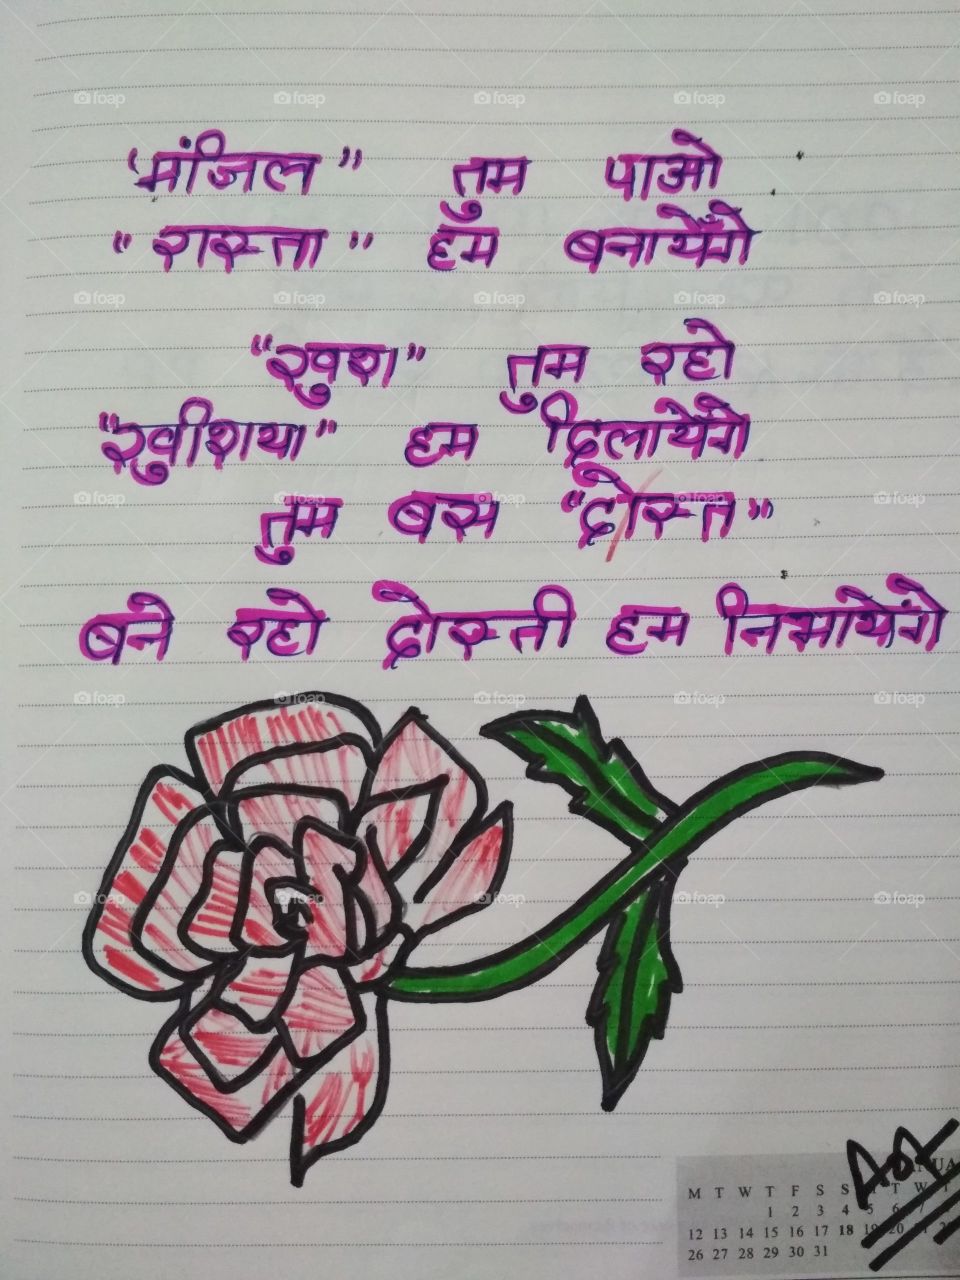 'मंजिल" तुम पाओ
"रास्ता" हम बनायेँगे
"खुश" तुम रहो
"खुशीया" हम दिलायेंगे
तुम बस "दोस्त"
बने रहो दोस्ती हम निभायेंगे
Art
M T W T F S S T W
1 2 3 4 5 6 7
12 13 14 15 16 17 18 19 20 21
26 27 28 29 30 31